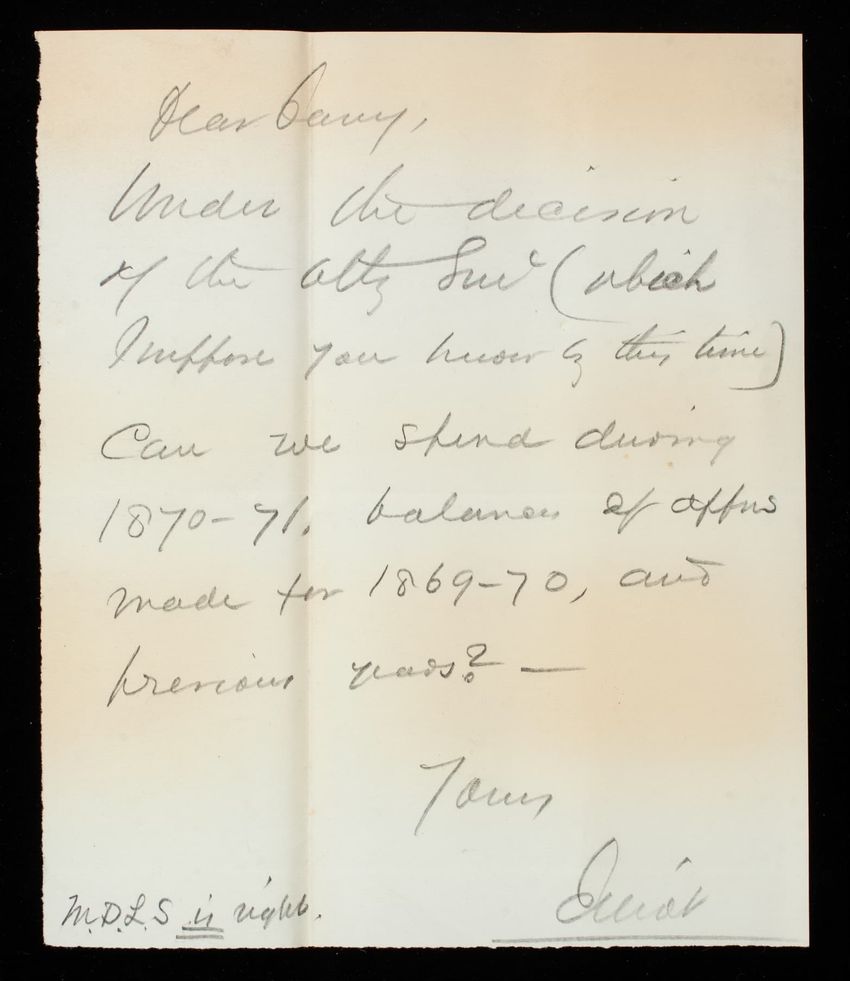 Dear Casey,
Under the decision
of the Atty Genl (which
I suppose you know by this time)
Can we spend during
1870-71. balances of apprns
made for 1869-70, and
previous years? —
Yours
Elliot
M.D.L.S is right.